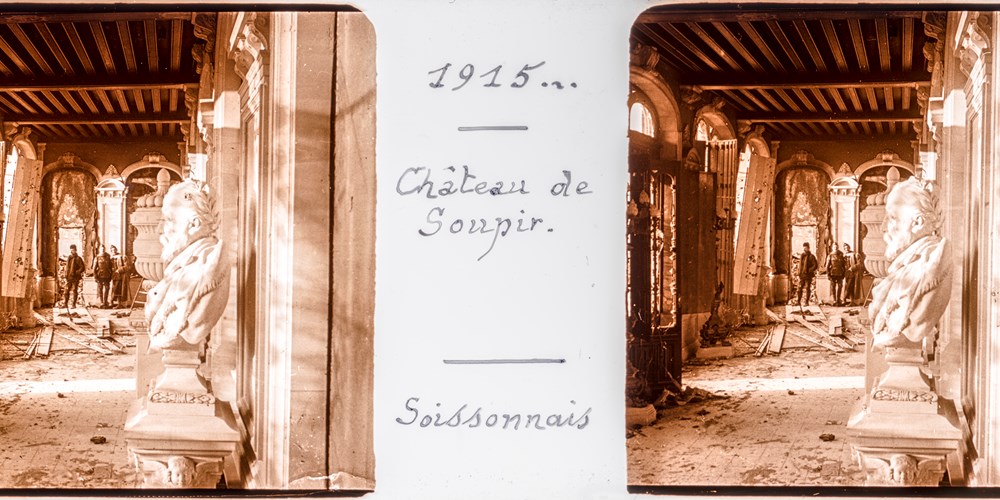 1915...
Château de
Soupir.
Soissonnais